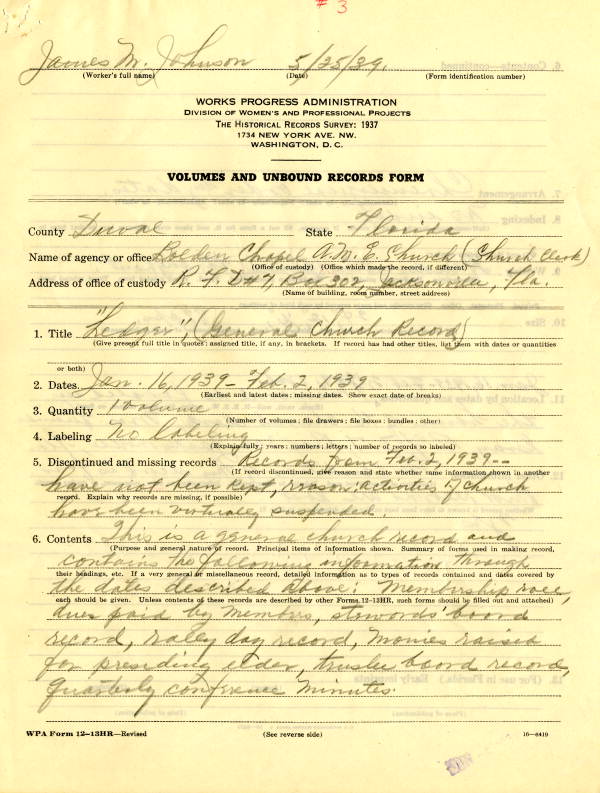 # 3
James M. Johnson 5/25/39.
(Worker's full name) (Date) (Form identification number)
WORKS PROGRESS ADMINISTRATION
DIVISION OF WOMEN'S AND PROFESSIONAL PROJECTS
THE HISTORICAL RECORDS SURVEY: 1937
1734 NEW YORK AVE. NW.
WASHINGTON, D. C.
VOLUMES AND UNBOUND RECORDS FORM
County Duval State Florida
Name of agency or office Bolden Chapel A.M.E. Church (Church Clerk)
(Office of custody) (Office which made the record, if different)
Address of office of custody R.F.D #7, Box 302, Jacksonville, Fla.
(Name of building, room number, street address)
1. Title "Ledger", (General Church Record)
(Give present full title in quotes; assigned title, if any, in brackets. If record has had other titles, list them with dates or quantities
or both)
2. Dates Jan. 16, 1939 – Feb. 2, 1939
(Earliest and latest dates; missing dates. Show exact date of breaks)
3. Quantity 1 volume
(Number of volumes; file drawers; file boxes; bundles; other)
4. Labeling No labeling
(Explain fully; years; numbers; letters; number of records so labeled)
5. Discontinued and missing records Records from Feb. 2, 1939 --
(If record discontinued, give reason and state whether same information shown in another
have not been kept, reason: activities of church
record. Explain why records are missing, if possible)
have been virtually suspended.
6. Contents This is a general church record and
(Purpose and general nature of record. Principal items of information shown. Summary of forms used in making record,
contains the following information through
their headings, etc. If a very general or miscellaneous record, detailed information as to types of records contained and dates covered by
the dates described above; Membership roll,
each should be given. Unless contents of these records are described by other Forms 12-13HR, such forms should be filled out and attached)
dues paid by members, stewards' board
record, rally day record, monies raised
for presiding elder, trustee board record,
quarterly conference minutes.
WPA Form 12-13HR—Revised (See reverse side) 16—6419